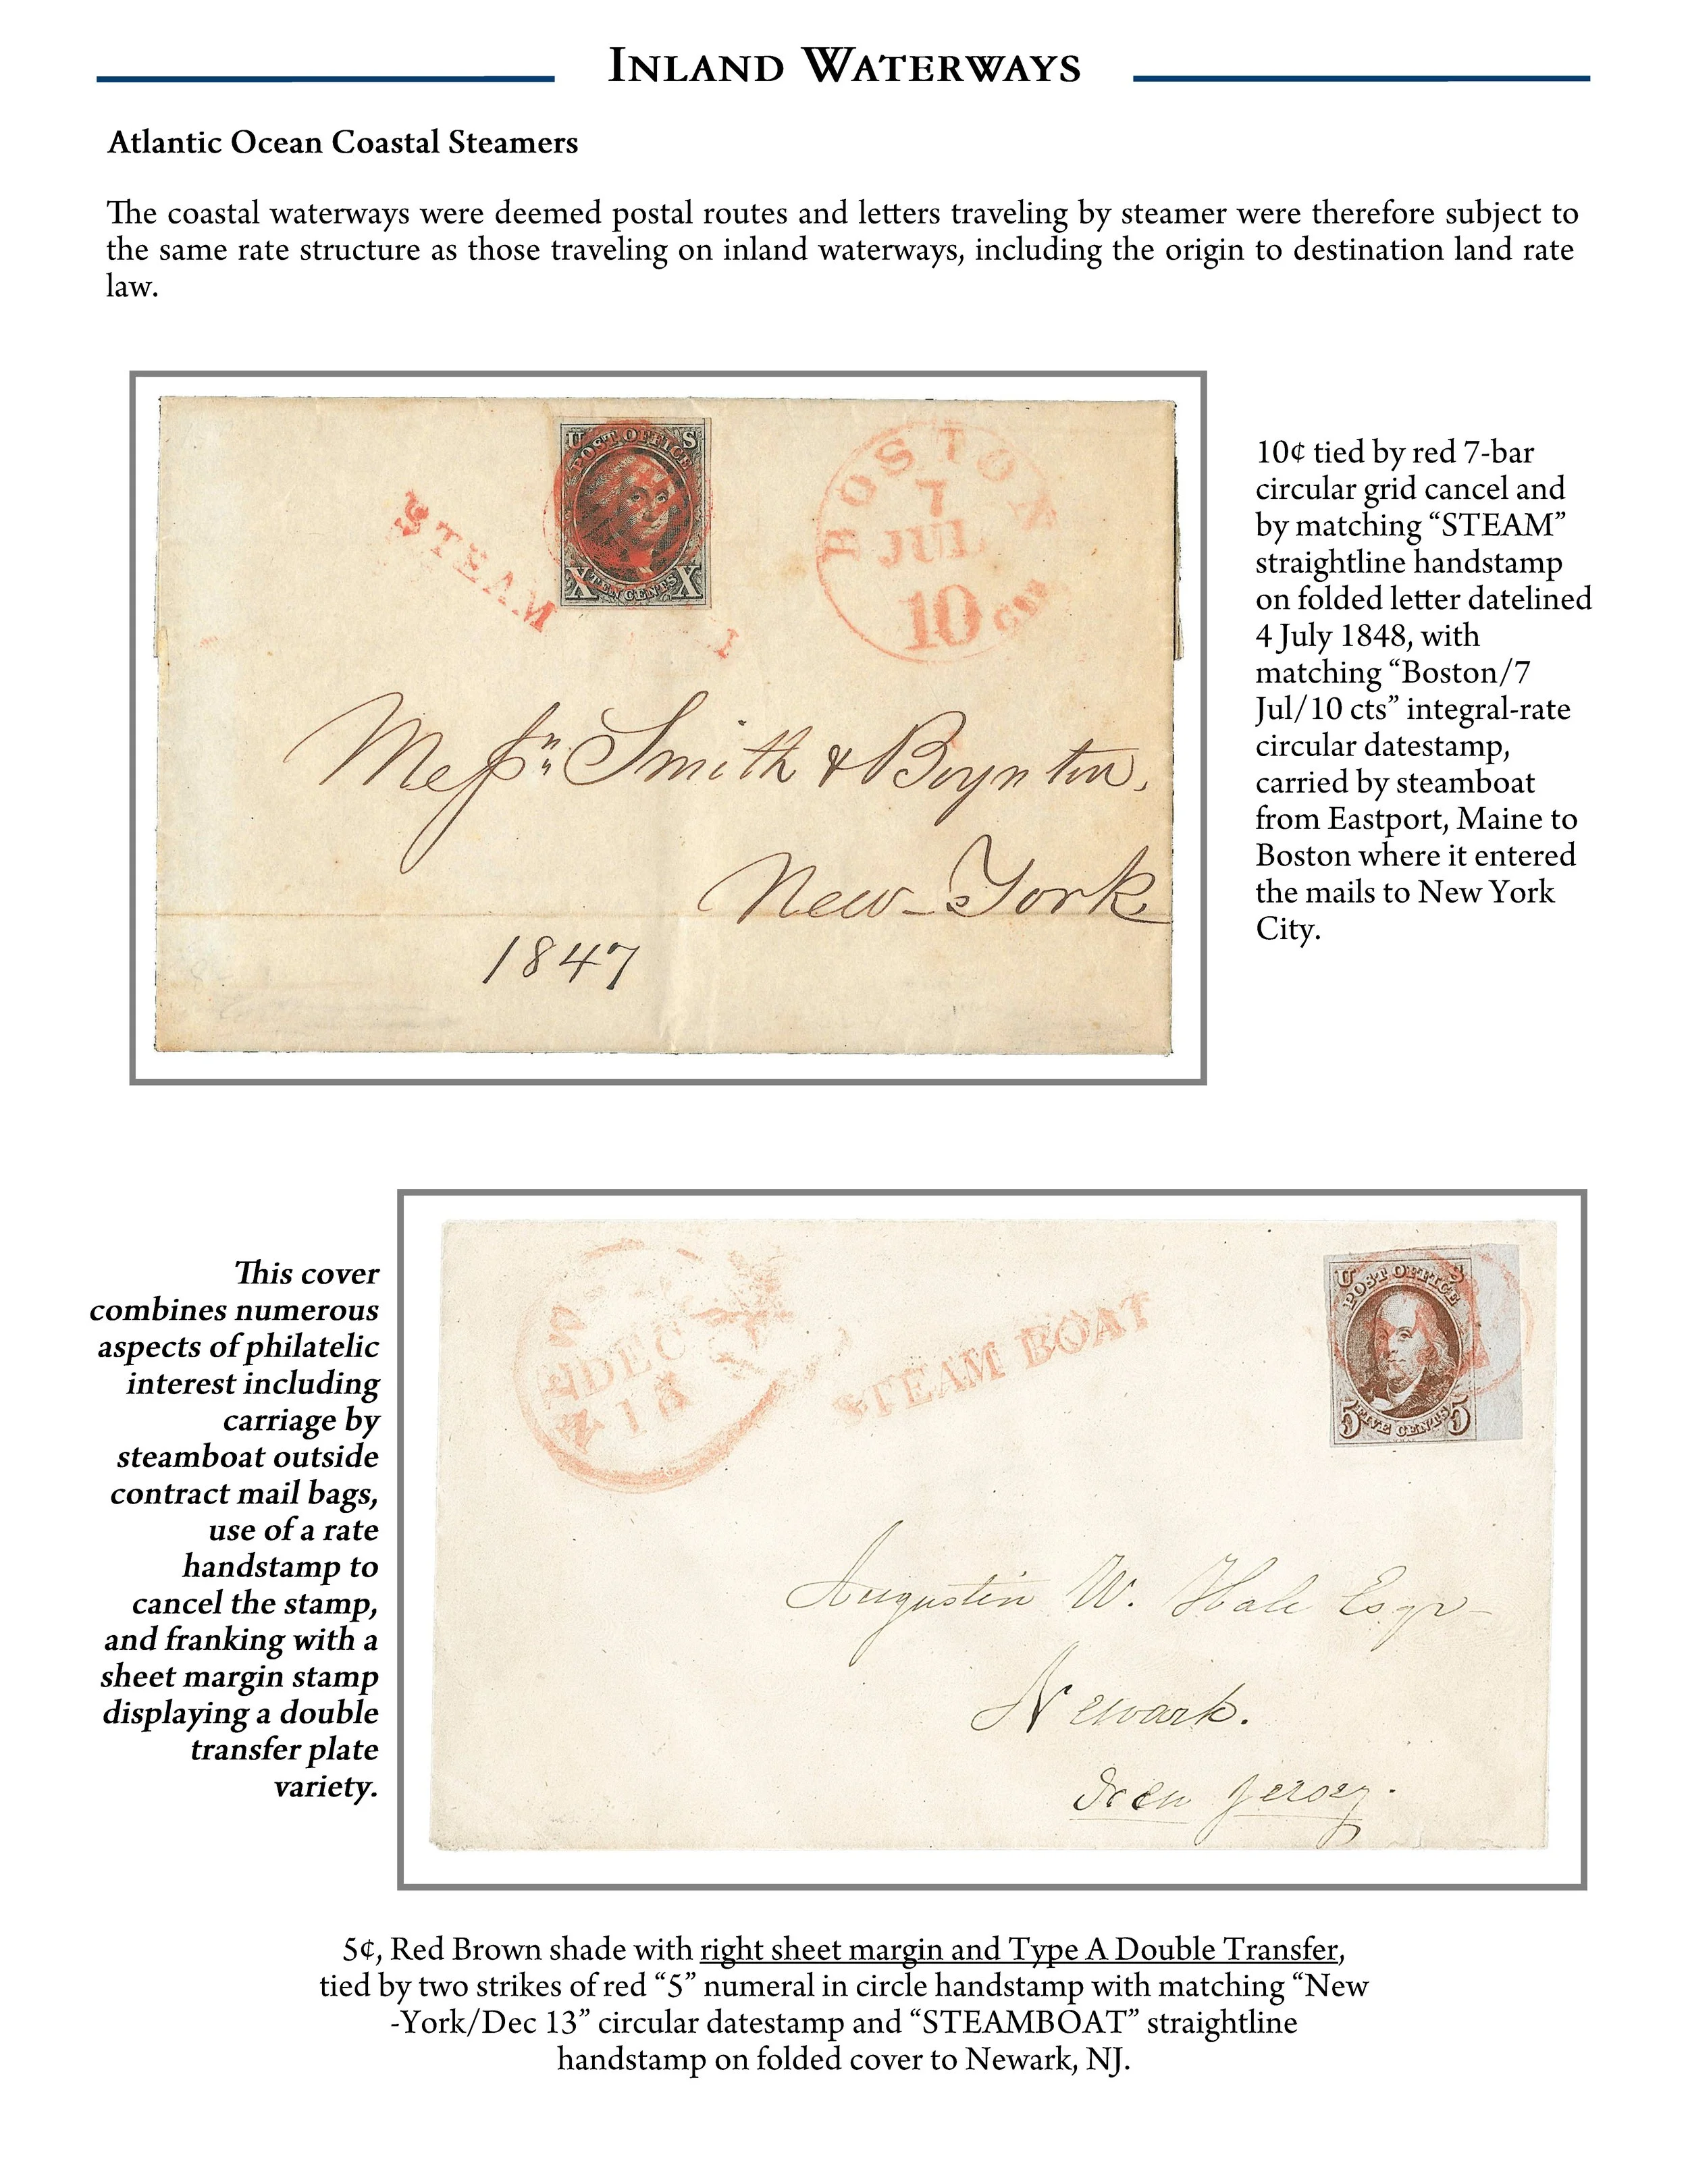 Inland Waterways
Atlantic Ocean Coastal Steamers
The coastal waterways were deemed postal routes and letters traveling by steamer were therefore subject to
the same rate structure as those traveling on inland waterways, including the origin to destination land rate
law.
U POST OFFICE S
X TEN CENTS X
STEAM
BOSTON
7
JUL
10 cts
Messrs Smith & Boynton,
New-York
1847
10¢ tied by red 7-bar
circular grid cancel and
by matching “STEAM”
straightline handstamp
on folded letter datelined
4 July 1848, with
matching “Boston/7
Jul/10 cts” integral-rate
circular datestamp,
carried by steamboat
from Eastport, Maine to
Boston where it entered
the mails to New York
City.
This cover
combines numerous
aspects of philatelic
interest including
carriage by
steamboat outside
contract mail bags,
use of a rate
handstamp to
cancel the stamp,
and franking with a
sheet margin stamp
displaying a double
transfer plate
variety.
DEC
13
STEAM BOAT
U POST OFFICE S
5 FIVE CENTS 5
Augustin W. Hale Esqr-
Newark.
New Jersey.
5¢, Red Brown shade with right sheet margin and Type A Double Transfer,
tied by two strikes of red “5” numeral in circle handstamp with matching “New
-York/Dec 13” circular datestamp and “STEAMBOAT” straightline
handstamp on folded cover to Newark, NJ.